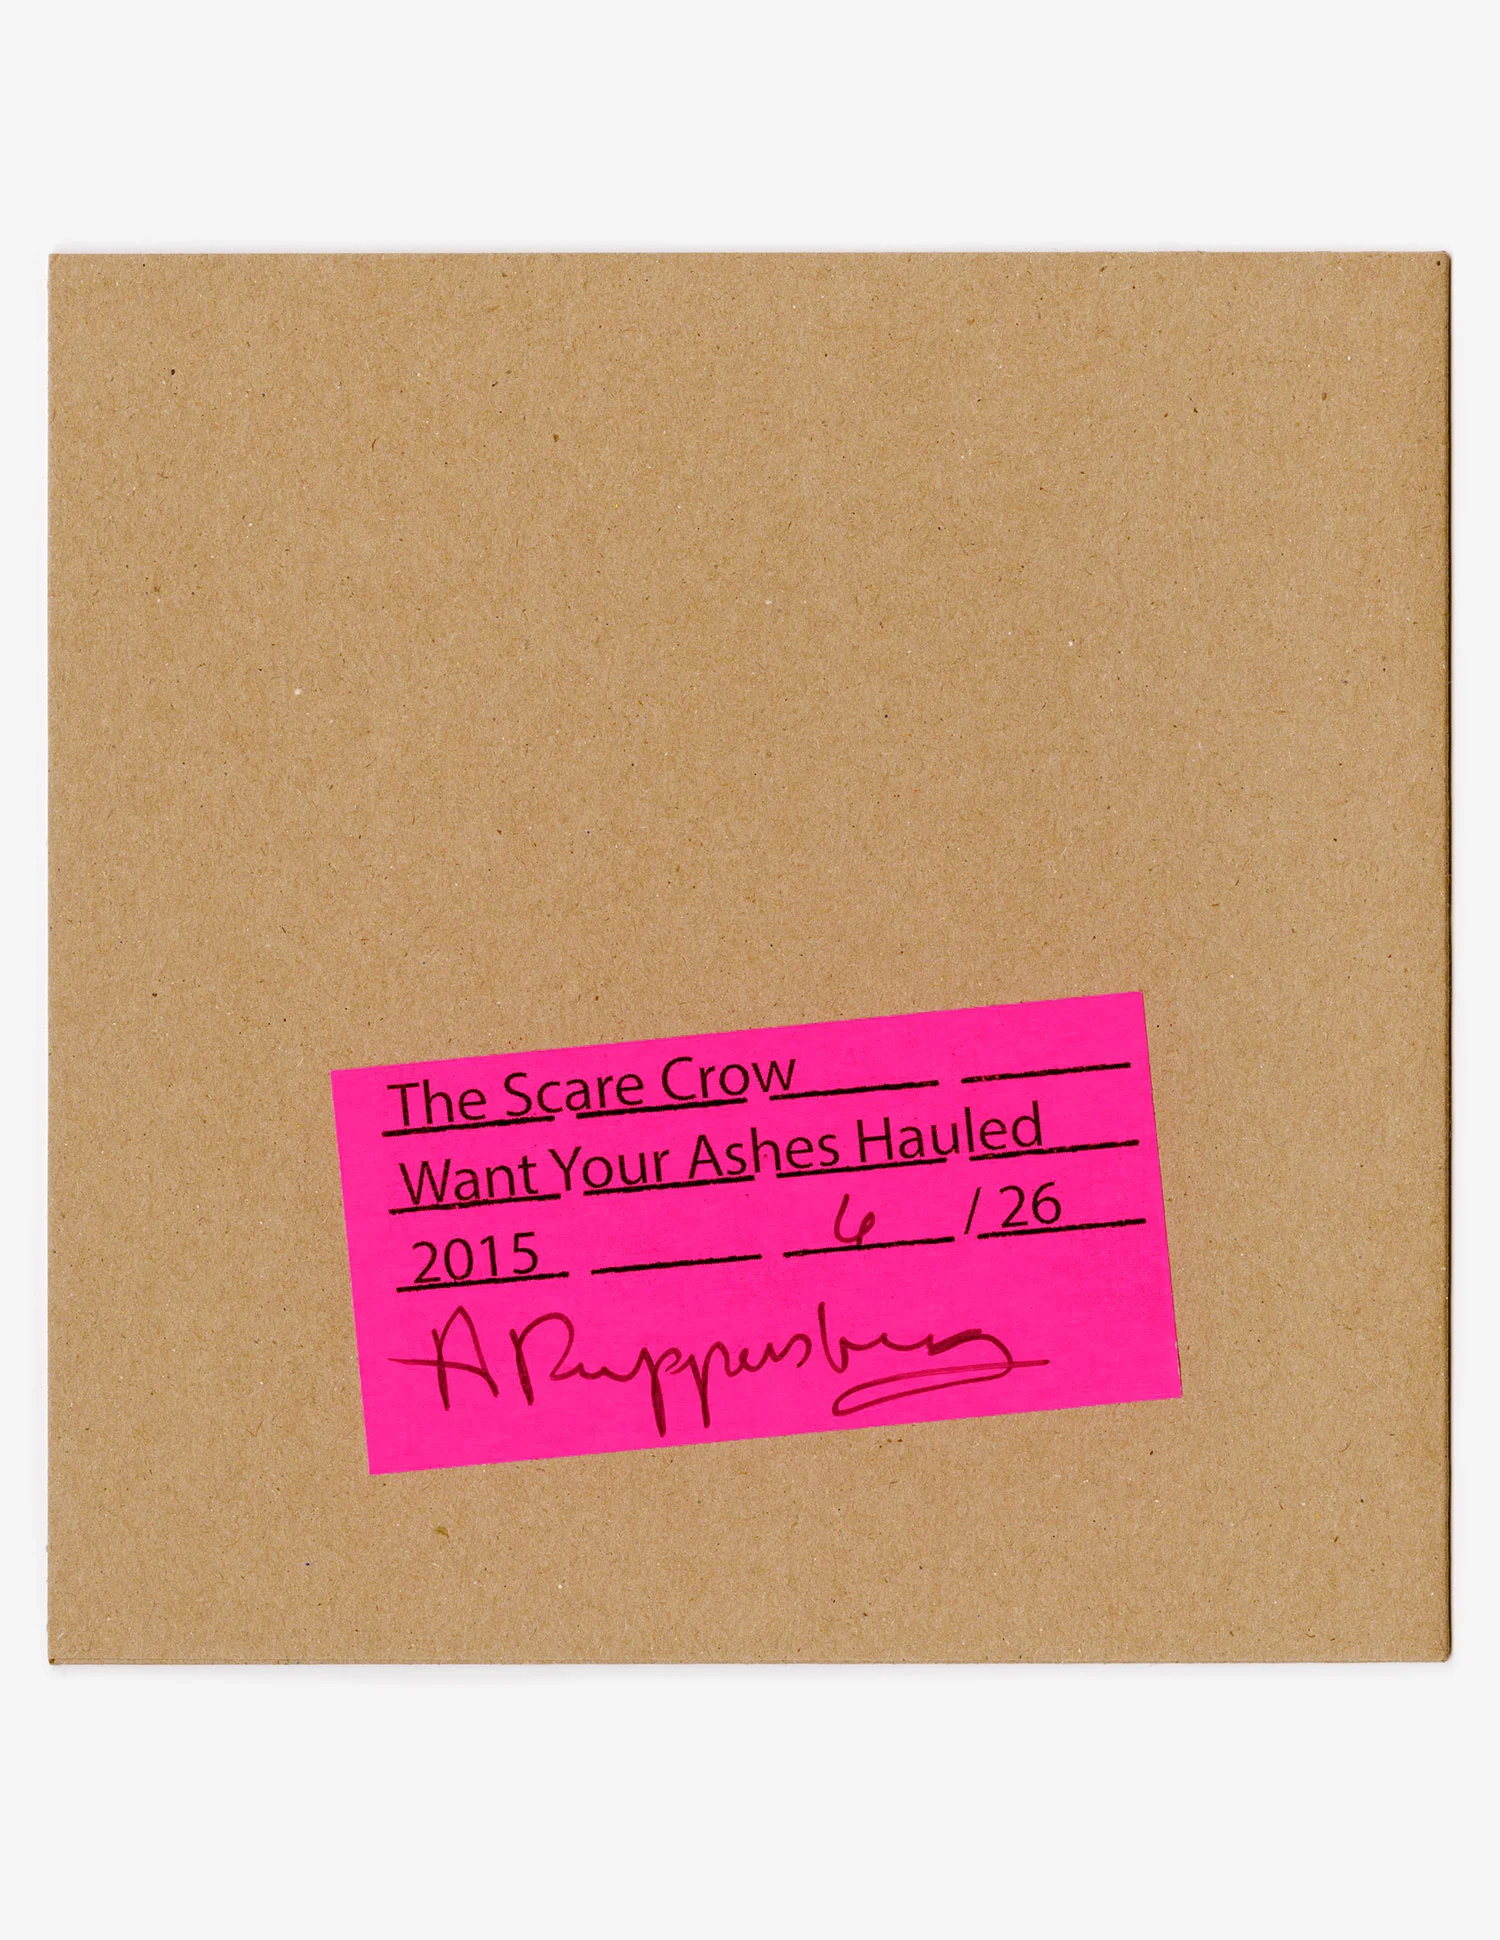 The Scare Crow
Want Your Ashes Hauled
2015 6 / 26
A Ruppersberg